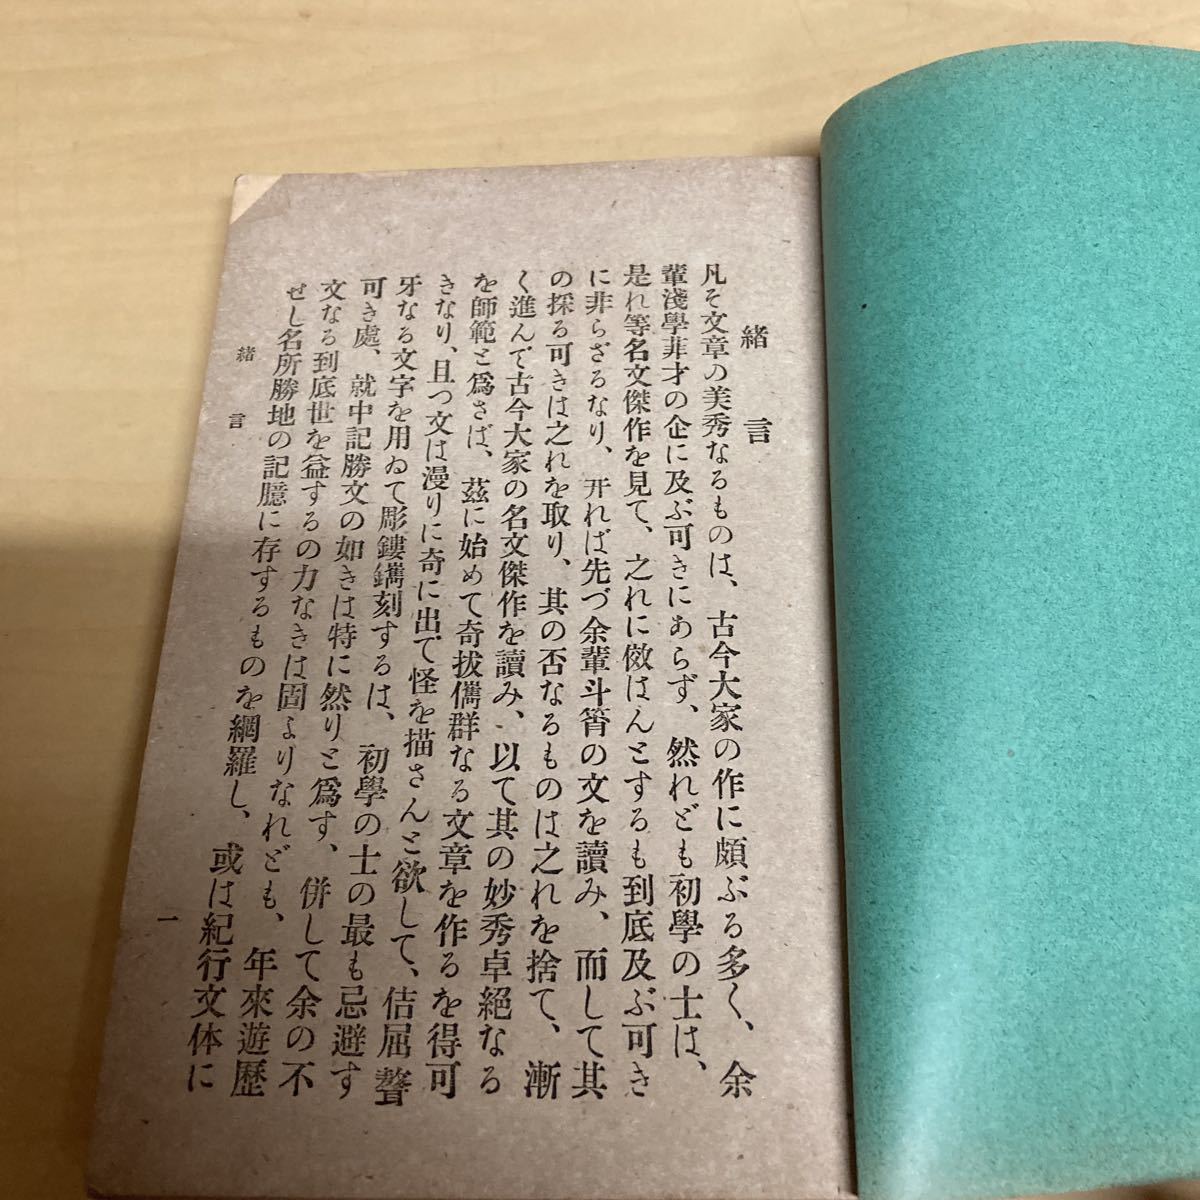 緒言
凡そ文章の美秀なるものは、古今大家の作に頗ぶる多く、余
輩淺學菲才の企に及ぶ可きにあらず、然れども初學の士は、
是れ等名文傑作を見て、之れに傚はんとするも到底及ぶ可き
に非らざるなり、幵れば先づ余輩斗筲の文を讀み、而して其
の採る可きは之れを取り、其の否なるものは之れを捨て、漸
く進んで古今大家の名文傑作を讀み、以て其の妙秀卓絕なる
を師範と爲さば、茲に始めて奇拔儁群なる文章を作るを得可
きなり、且つ文は漫りに奇に出で怪を描さんと欲して、佶屈聱
牙なる文字を用ゐて彫鏤鐫刻するは、初學の士の最も忌避す
可き處、就中記勝文の如きは特に然りと爲す、併して余の不
文なる到底世を益するの力なきは固よりなれども、年來遊歷
せし名所勝地の記臆に存するものを網羅し、或は紀行文体に
緒言
一